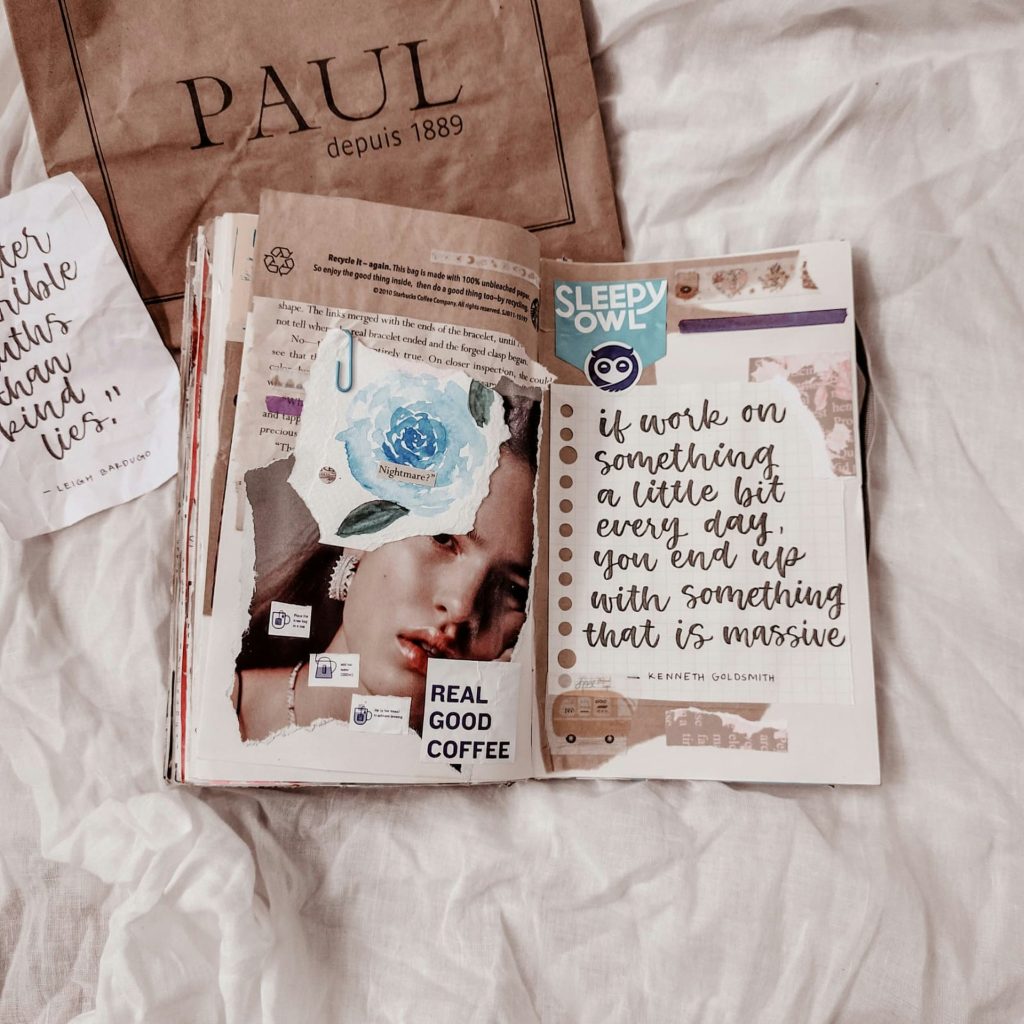 PAUL
depuis 1889
than
kind
lies."
- LEIGH BARDUGO
Recycle It – again. This bag is made with 100% unbleached paper.
So enjoy the good thing inside, then do a good thing too–by recycling.
© 2010 Starbucks Coffee Company. All rights reserved.
shape. The links merged with the ends of the bracelet, until
not tell when real bracelet ended and the forged clasp began.
No—
tirely true. On closer inspection, she could
see that
and tapp
precious
Nightmare?"
REAL
GOOD
COFFEE
SLEEPY
OWL
if work on
something
a little bit
every day,
you end up
with something
that is massive
— KENNETH GOLDSMITH